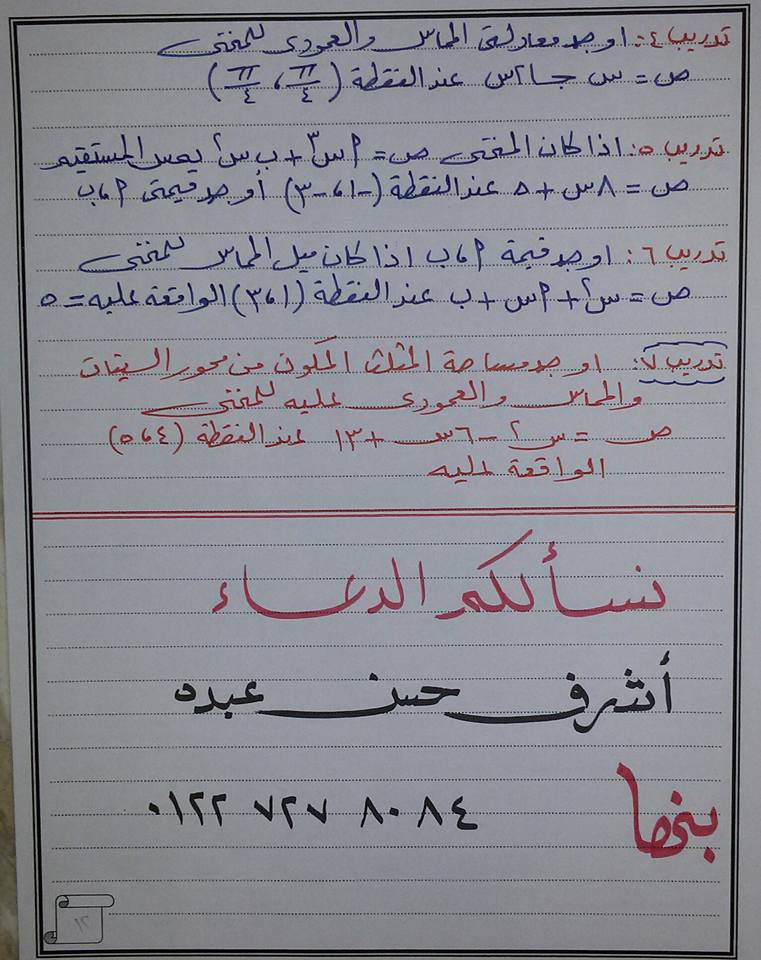 تدريب ٤: اوجد معادلتى المماس والعمودى للمنحنى
ص = س جا ٢س عند النقطة (π/٤ ، π/٤)
تدريب ٥: اذا كان المنحنى ص = أ س٣ + ب س٢ يمس المستقيم
ص = ٨س + ٥ عند النقطة (-١، -٣) أوجد قيمتى أ، ب
تدريب ٦: اوجد قيمة أ، ب اذا كان ميل المماس للمنحنى
ص = س٢ + أ س + ب عند النقطة (١، ٣) الواقعة عليه = ٥
تدريب ٧: اوجد مساحة المثلث المكون من محور السينات
والمماس والعمودى عليه للمنحنى
ص = س٢ - ٦س + ١٣ عند النقطة (٤، ٥)
الواقعة عليه
نسألكم الدعاء
أشرف حسن عبده
بنها
٠١٢٢ ٧٢٧ ٨٠٨٤
١٢